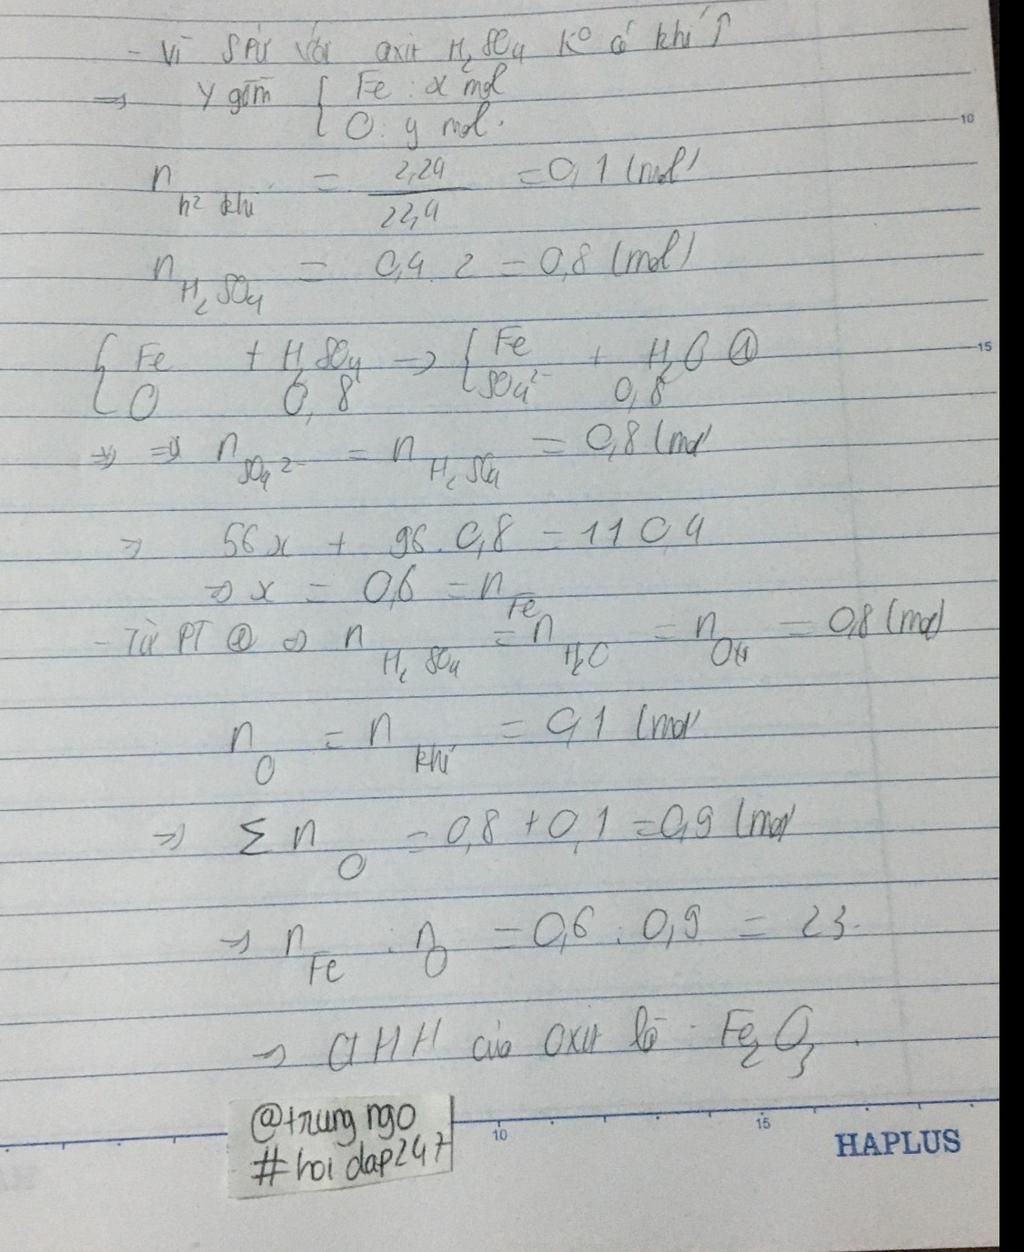 - Vì spứ với axit H2SO4 ko có khí ↑
=> Y gồm { Fe : x mol
O : y mol.
10
n h2 khí = 2,24 / 22,4 = 0,1 (mol)
n H2SO4 = 0,4 . 2 = 0,8 (mol)
{ Fe O + H2SO4 -> { Fe SO4 2- + H2O ①
15
0,8 0,8
=> => n SO4 2- = n H2SO4 = 0,8 (mol
=> 56x + 96.0,8 = 110,4
=> x = 0,6 = n Fe
- Từ PT ① => n H2SO4 = n H2O = n O = 0,8 (mol)
n O = n khí = 0,1 (mol
=> Σ n O = 0,8 + 0,1 = 0,9 (mol
=> n Fe : n O = 0,6 : 0,9 = 2 3.
=> CTHH của oxit là : Fe2O3.
@trung ngo
#hoi dap247
10 15
HAPLUS